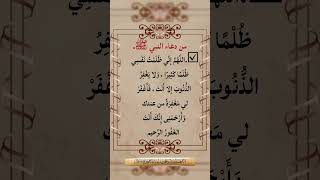 من دعاء النبي ﷺ.
☑ .اللَّهُمَّ إِنِّي ظَلَمْتُ نَفْسِي
ظُلْمًا كَثِيرًا ، وَلَا يَغْفِرُ
الذُّنُوبَ إِلَّا أَنْتَ ، فَاغْفِرْ
لِي مَغْفِرَةً مِنْ عِنْدِكَ
وَارْحَمْنِي إِنَّكَ أَنْتَ
الغَفُورُ الرَّحِيمِ